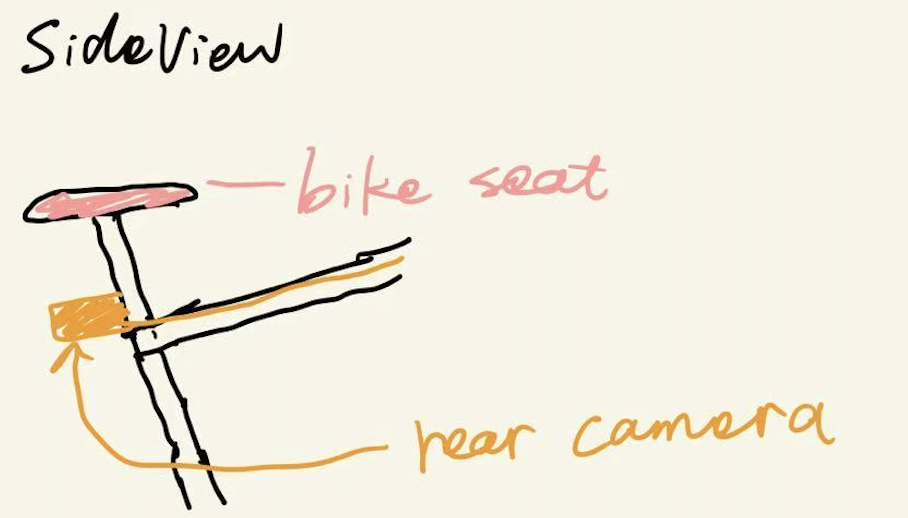 SideView
bike seat
rear camera